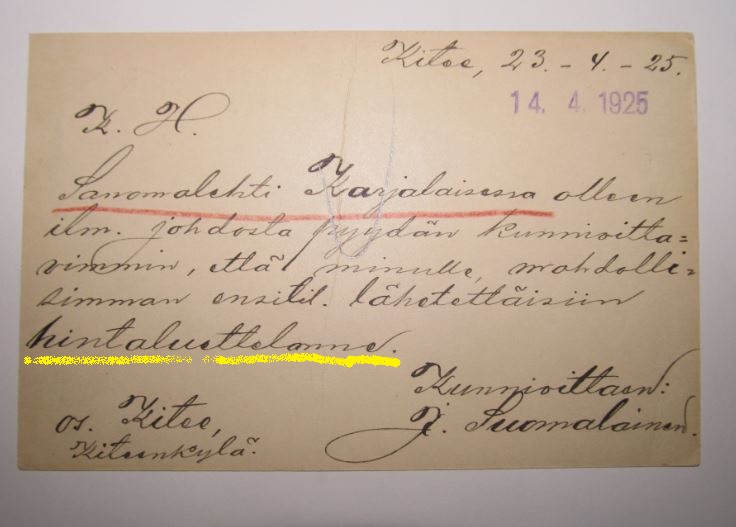 Kitee, 23. - 4. - 25.
14. 4. 1925
K. H.
Sanomalehti Karjalaisessa olleen
ilm. johdosta pyydän kunnioitta=
vimmin, että minulle, mahdolli=
simman ensitil. lähetettäisiin
hintaluettelonne.
Kunnioittaen:
os. Kitee,
J. Suomalainen.
Kiteenkylä.